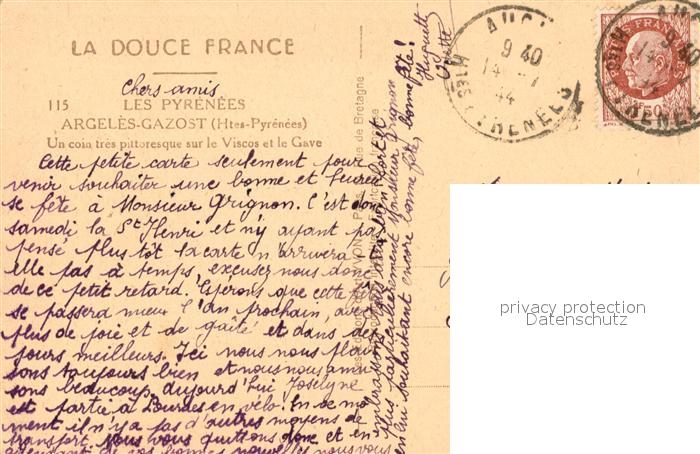 LA DOUCE FRANCE
Chers amis
115 LES PYRÉNÉES
ARGELÈS-GAZOST (Htes-Pyrénées)
Un coin très pittoresque sur le Viscos et le Gave
Cette petite carte seulement pour
venir souhaiter une bonne et heureu
se fête à Monsieur Grignon. C'est donc
samedi la St Henri et n'y ayant pas
pensé plus tôt la carte n'arrivera
elle pas à temps, excusez nous donc
de ce petit retard. Espérons que cette fête
se passera mieux l'an prochain, avec
plus de joie et de gaîté et dans des
jours meilleurs. Ici nous nous plai
sons toujours bien et nous nous amu
sons beaucoup. aujourd'hui Joselyne
est partie à Lourdes en vélo. En ce mo
ment il n'y a pas d'autres moyens de
transport. Nous vous quittons donc et en
attendant de vos bonnes nouvelles nous vous
embrassons tous bien fort et
plus particulièrement Monsieur Grignon
en lui souhaitant encore bonne fête, bonne fête!
Huguette
de Bretagne
9 40
44
HTES PYRENEES
POSTES FRANÇAISES
privacy protection
Datenschutz